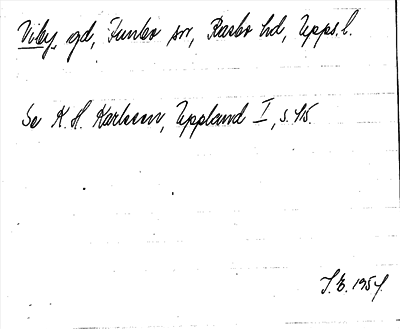 Viby, gd, Funbo sn, Rasbo hd, Upps. l.
Se K. H. Karlsson, Uppland I, s. 45.
S. E. 1954.